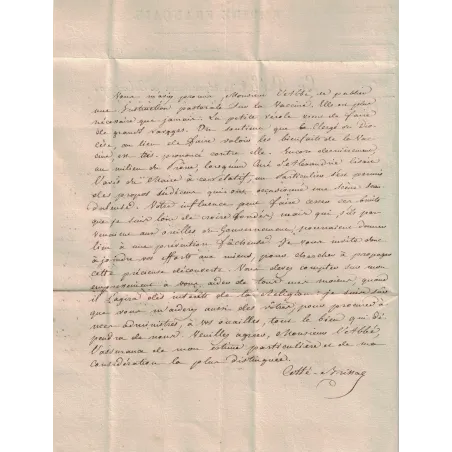 Vous m'aviez promis, Monsieur l'abbé, de publier
une Instruction pastorale sur la Vaccine. Elle est plus
nécessaire que jamais. La petite vérole vient de faire
de grands ravages. On soutient que le Clergé du Dio-
cèse, au lieu de faire valoir les bienfaits de la Vac-
cine, s'est prononcé contre elle. Encore dernièrement,
au milieu du Prône, lorsqu'un Curé
l'avis du Maire à ce relatif, un particulier s'est permis
des propos indécens qui ont occasionné une Scène scan-
daleuse. Votre influence peut faire cesser ces bruits
que je suis loin de croire fondés, mais qui, s'ils par-
venaient aux oreilles du Gouvernement, pourraient donner
lieu à une prévention fâcheuse. Je vous invite donc
à joindre vos efforts aux miens, pour chercher à propager
cette précieuse découverte. Vous devez compter sur mon
empressement à vous aider de tous mes moyens, quand
il s'agira des intérêts de la Religion. Je suis sûr
que vous m'aiderez aussi des vôtres, pour procurer à
mes administrés, à vos ouailles, tout le bien qui dé-
pendra de nous. Veuillez agréer, Monsieur l'Abbé,
l'assurance de mon estime particulière et de ma
considération la plus distinguée.
Cossé-Brissac